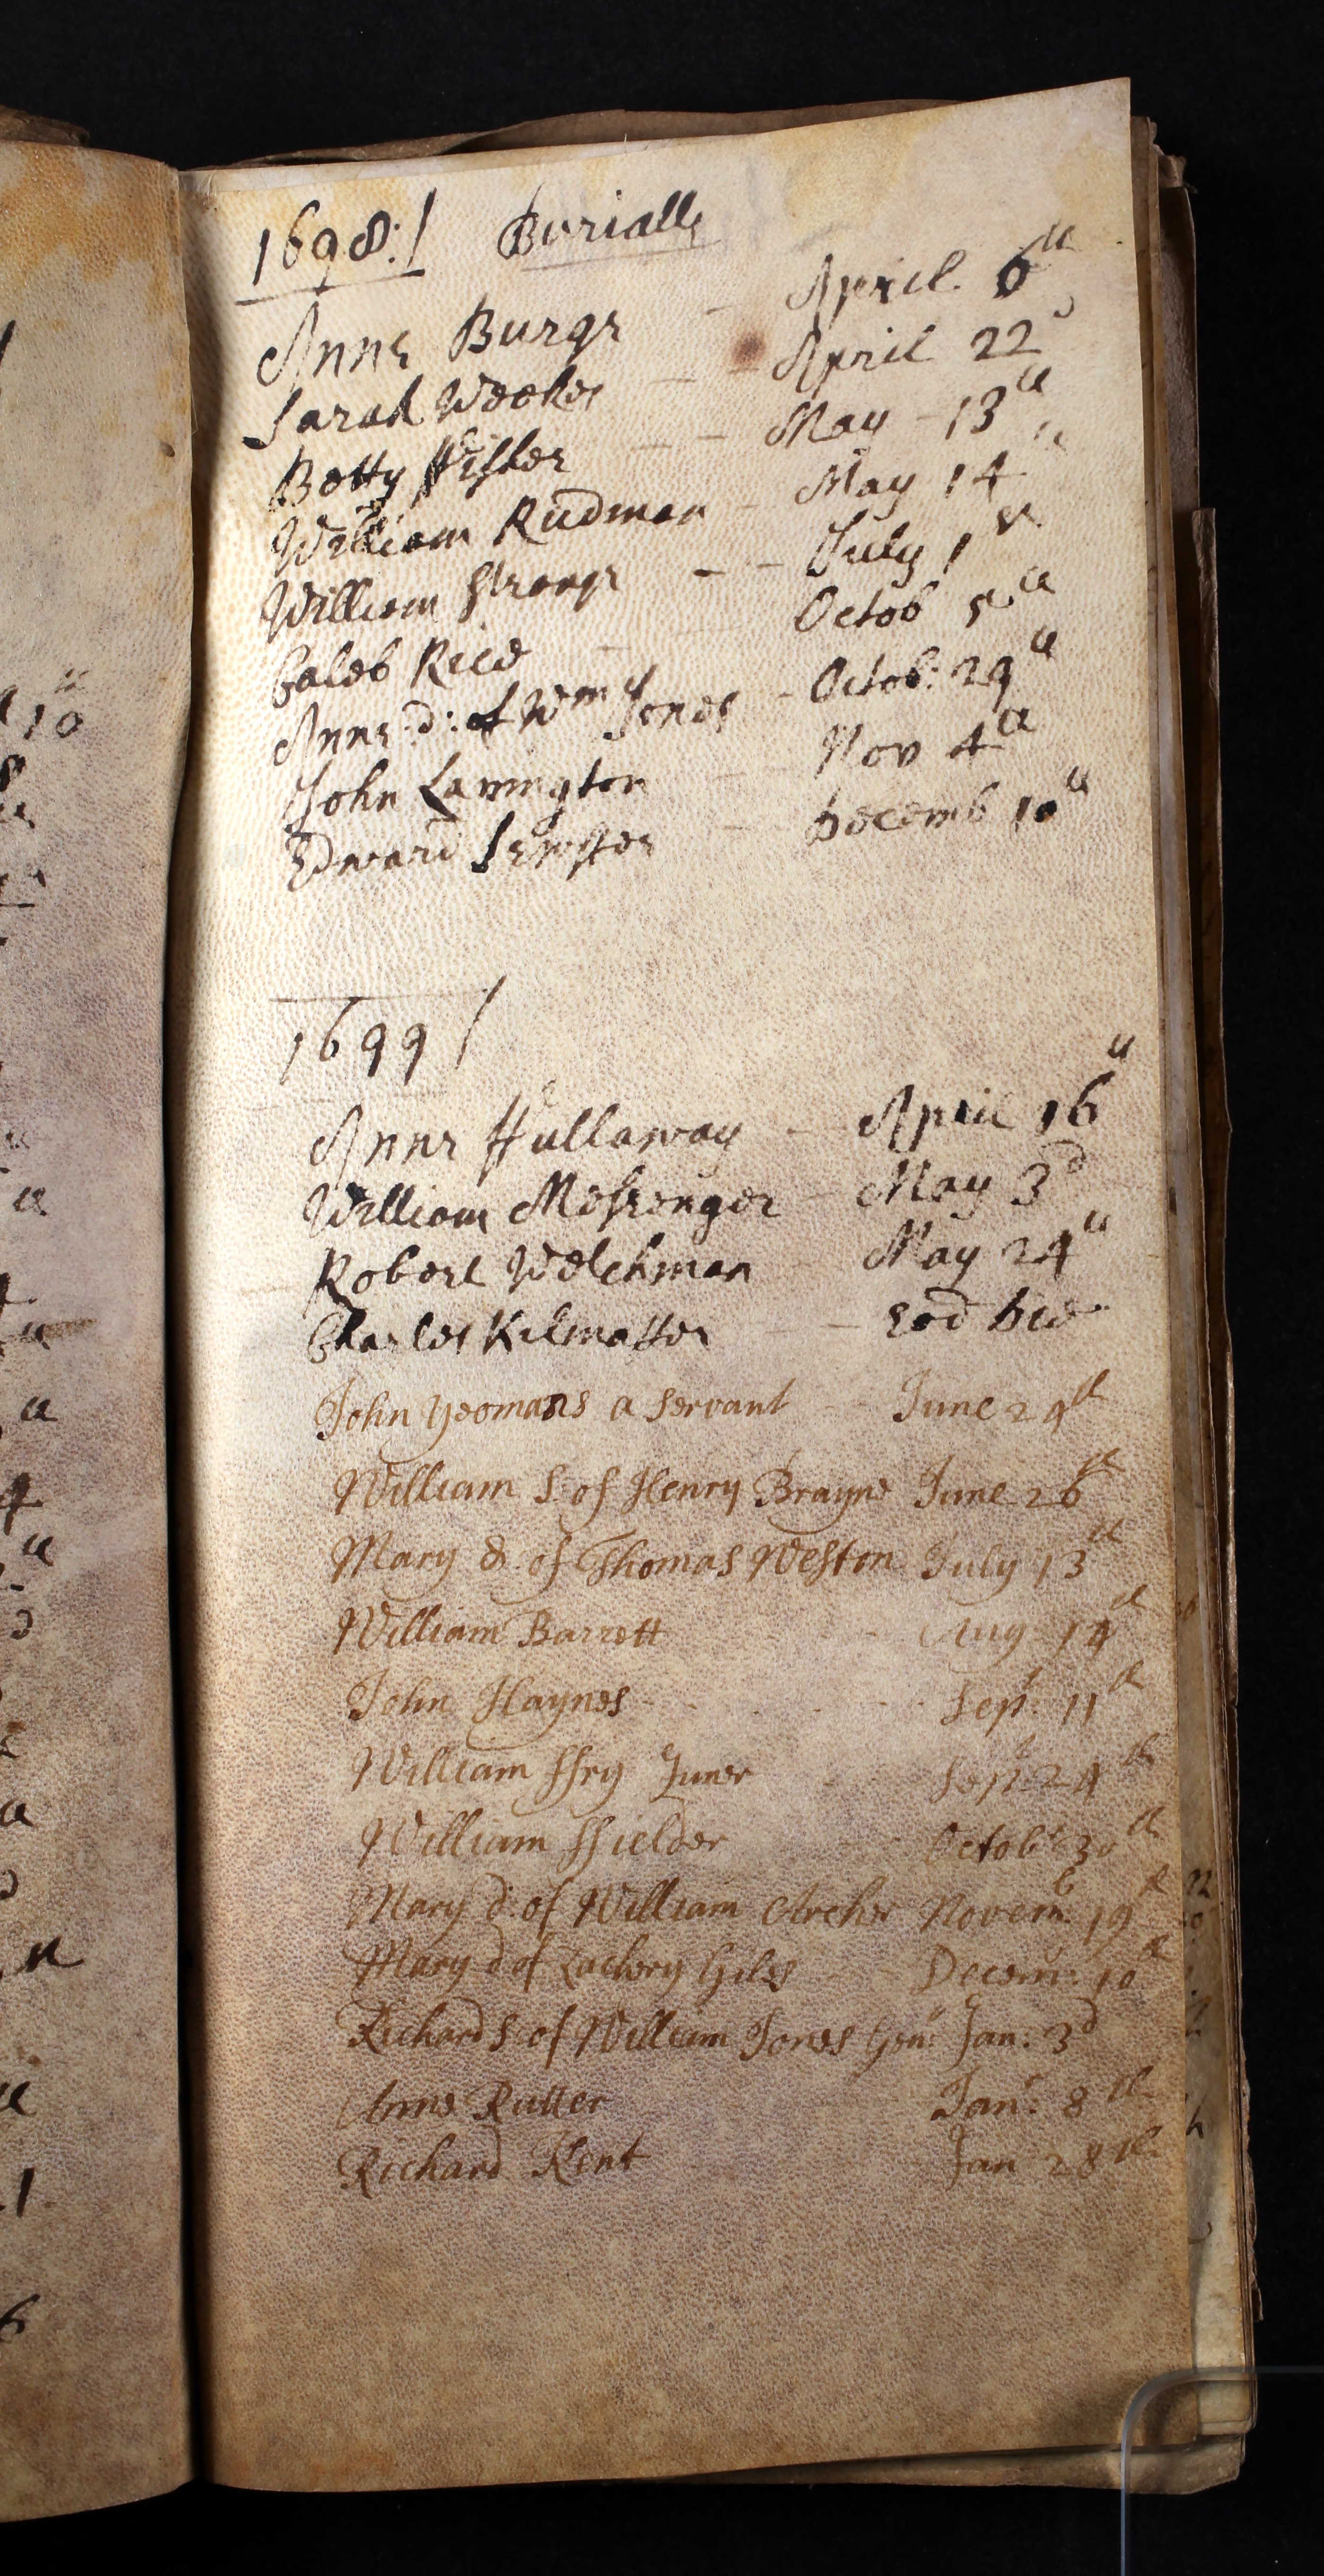 1698:/ Burialls
Anne Burge - April. 6th
Sarah Weekes - - April 22d
Betty ffisher - - May - 13th
William Rudman - May 14th
William Strange - - July 1st
Caleb Rice - Octob 5th
Anne: d: of Wm Jones - Octob: 29th
John Lavington - - Nov 4th
Edward - Decemb 10th
1699 /
Anne Hullaway - April 16th
William Messenger - May 3d
Robert Welchman May 24th
Charles Kilmaster - eod die
John Yeomans a Servant June 29th
William S: of Henry Brayne June 26th
Mary d: of Thomas Weston July 13th
William Barrett - Aug: 14th
John Haynes - - Sept. 11th
William ffry Juner - Sept. 24th
William ffielder Octobr 30th
Mary d: of William Archer Novemb: 19th
Mary d of Zachery Giles - - Decem: 10th
Richard S: of William Jones Gen: Jan: 3d
Anne Rutter Jan: 8th
Richard Kent Jan 28th